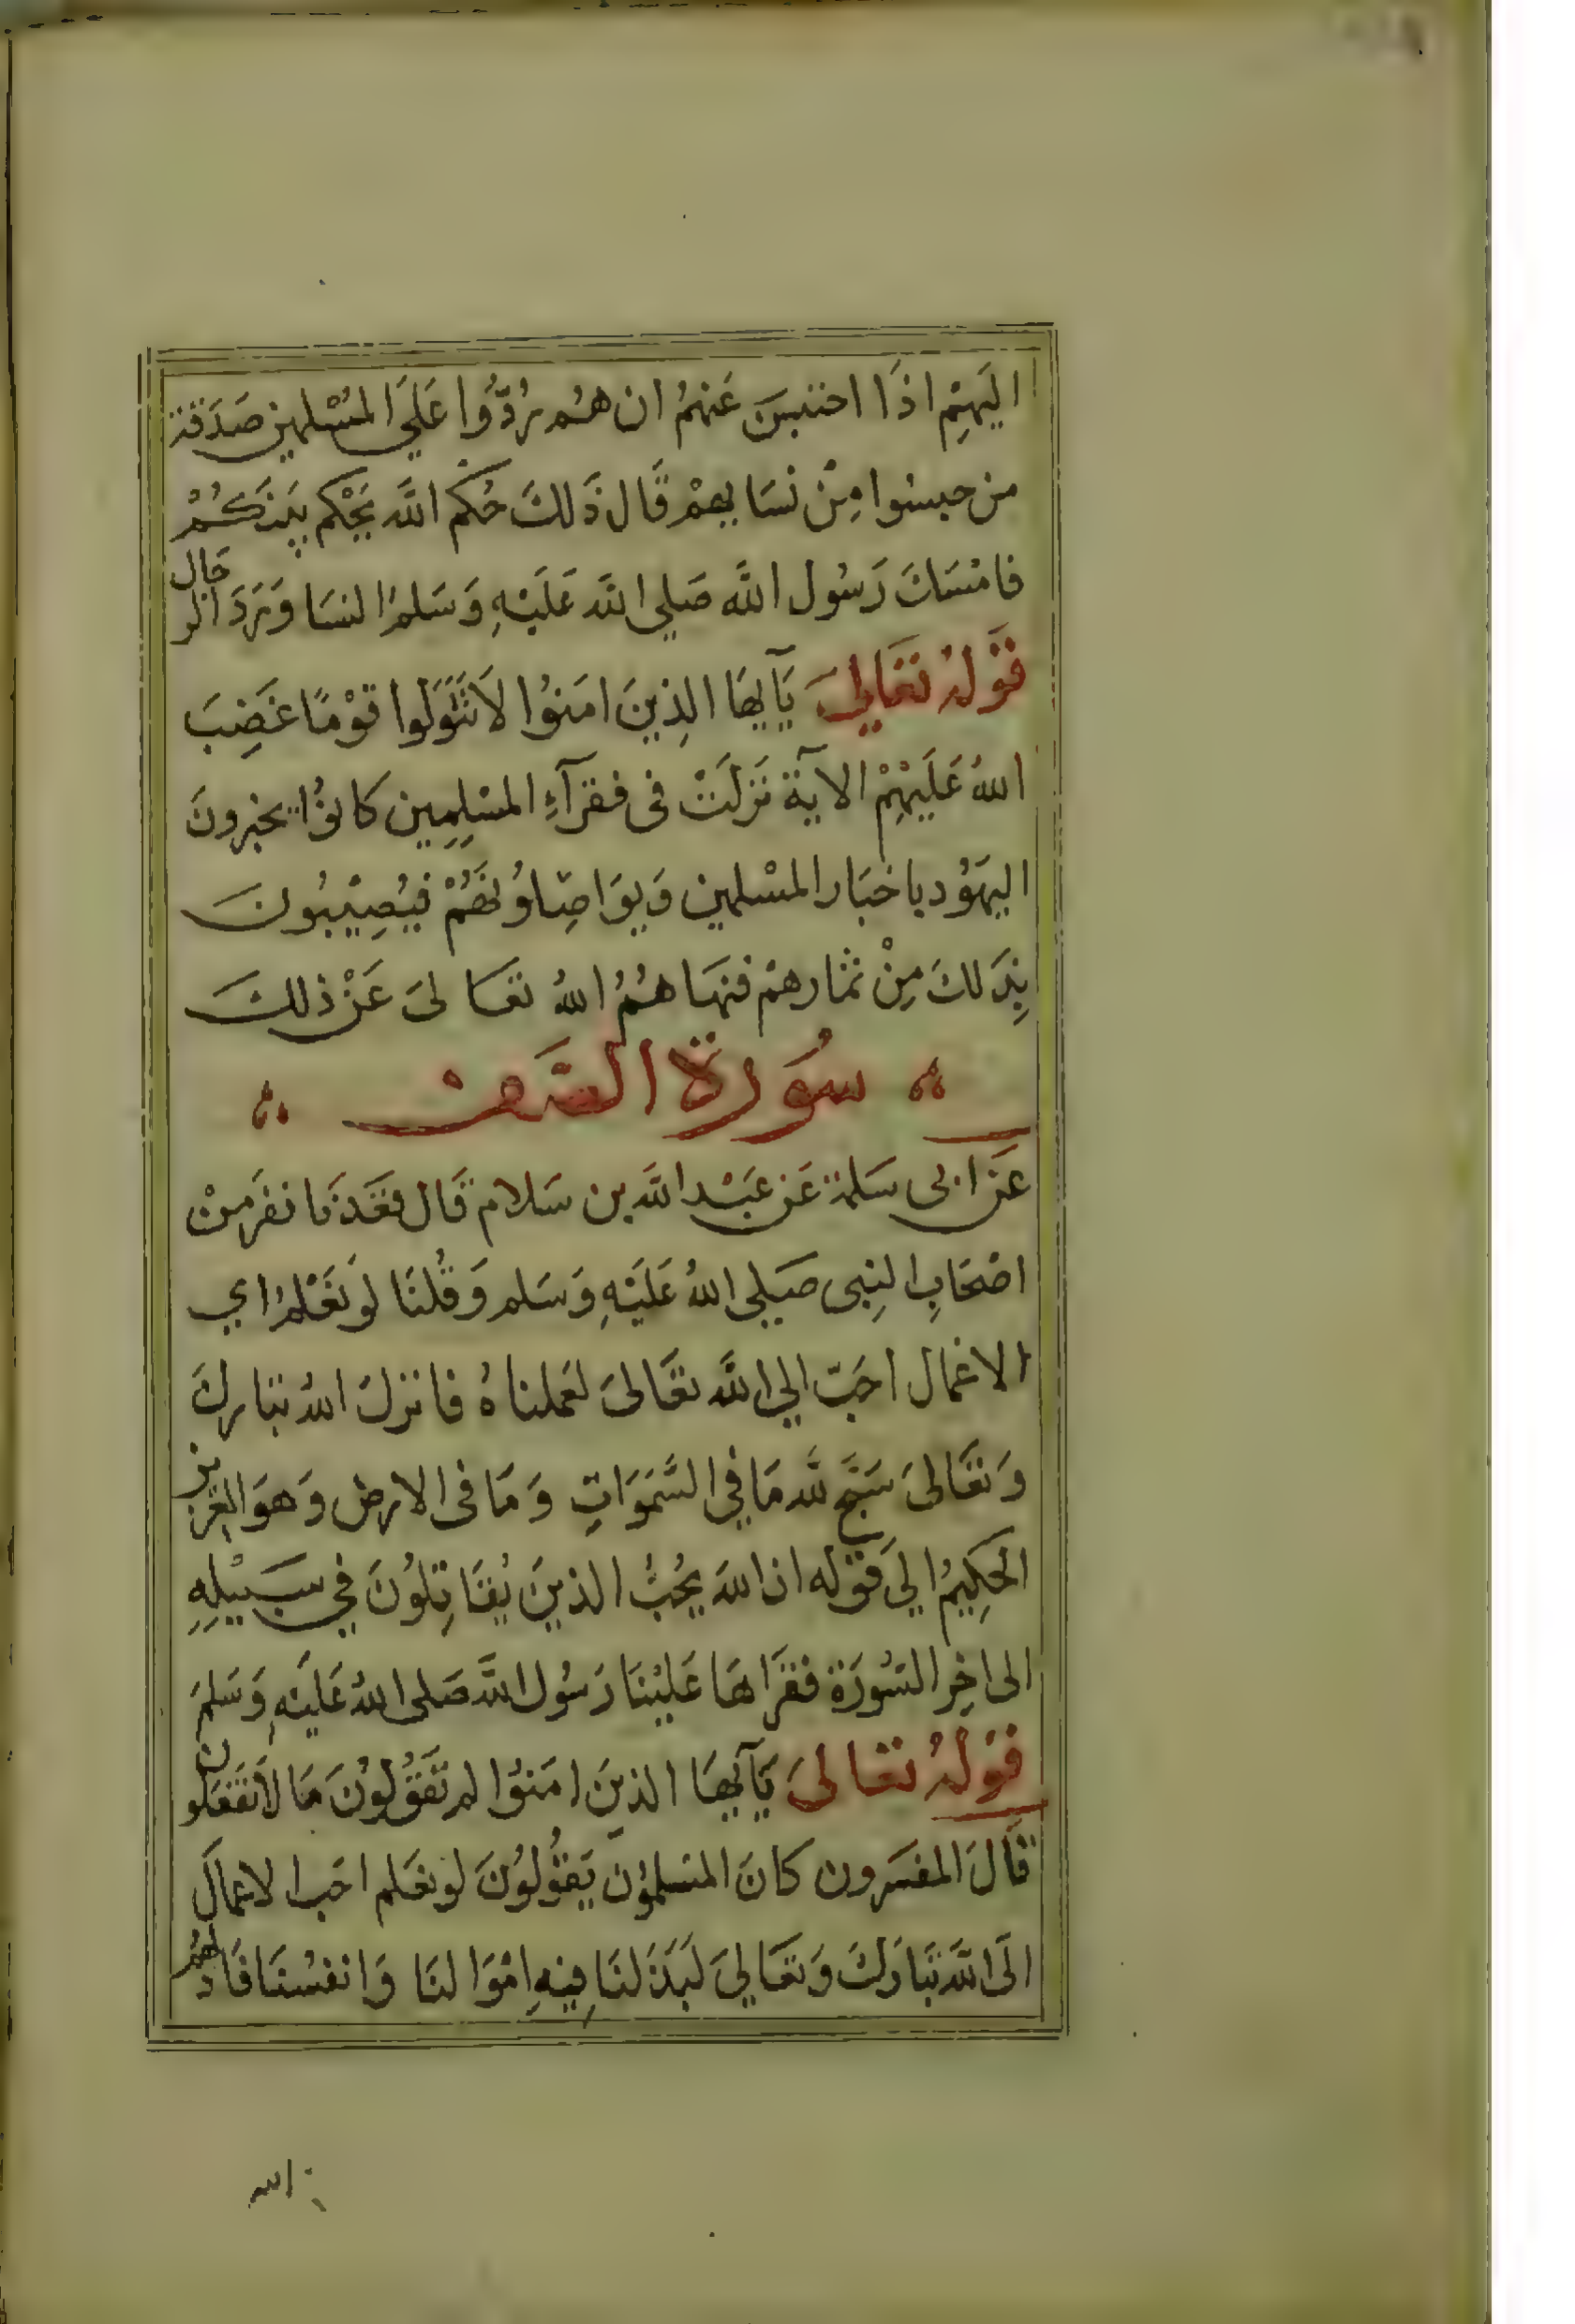 اليَهِمْ اذَا احتبسَ عَنهمُ ان هُم رُدُّوا عَلَي المُسْلمين صَدَقة
من حبسُوا مِنْ نسَايهمْ قَال ذَلكَ حُكم اللَّه يَحْكم بَيْنَكُمْ
فامْسَكَ رَسُول اللَّه صَلي اللَّه عَلَيْهِ وَسَلمُ النسَا وَرَدَ الرجَال
قَوْلهُ تَعَاليَ يَآيهَا الذِينَ امَنُوا لاَ تَتَوَلَوا قوْمًا غَضِبَ
اللهُ عَلَيْهِمْ الآيَة نَزلَتْ فى فقرَآءِ المسْلِمِين كانوُا يخبرونَ
اليهَوُد باخبَار المسْلمين وَيوَاصِلوُنهَمُ فيُصِيْبُونَ
بِذَلكَ مِنْ ثمارهمْ فنهَاهُمُ اللهُ تعَالىَ عَنْ ذلكَ
سُوَرة الصَّف
عَن ابى سَلمة عَن عَبْد اللَّه بن سَلام قَال قعَدنَا نفَر مِنْ
اصْحَابِ النِبى صَلى اللهُ عَلَيْهِ وَسَلم وَقُلنَا لوَ نَعْلمُ اي
الاعْمال احَبّ الي اللَّه تعَالىَ لعَملناهُ فانزلَ اللهُ تبَاركَ
وَتعَالىَ سَبَّح لله مَا في السَّمَوَاتِ وَمَا فى الارض وَهوَ العَزيز
الحكِيمُ الي قوله ان اللهَ يحُبُّ الذينَ يُقَاتِلوُنَ في سَبيْلِهِ
الى اخِر السُّورَة فقرَاهَا عَليْنَا رَسُول اللَّه صَلى اللهُ عَلَيْهِ وَسَلمَ
قوْلهُ تعَالىَ يَآيهَا الذينَ امَنوُا لم تَقُولوُنَ مَا لاَ تَفعَلون
قَالَ المفسَرون كانَ المسلموُن يَقوُلوُنَ لو نعَلم احَب الاعمالَ
الَى اللَّه تبَارَكَ وَتعَاليَ لبَذَلنَا فِيهِ امْوَالنَا وَانفسُنَا فَادَلهُم
الله